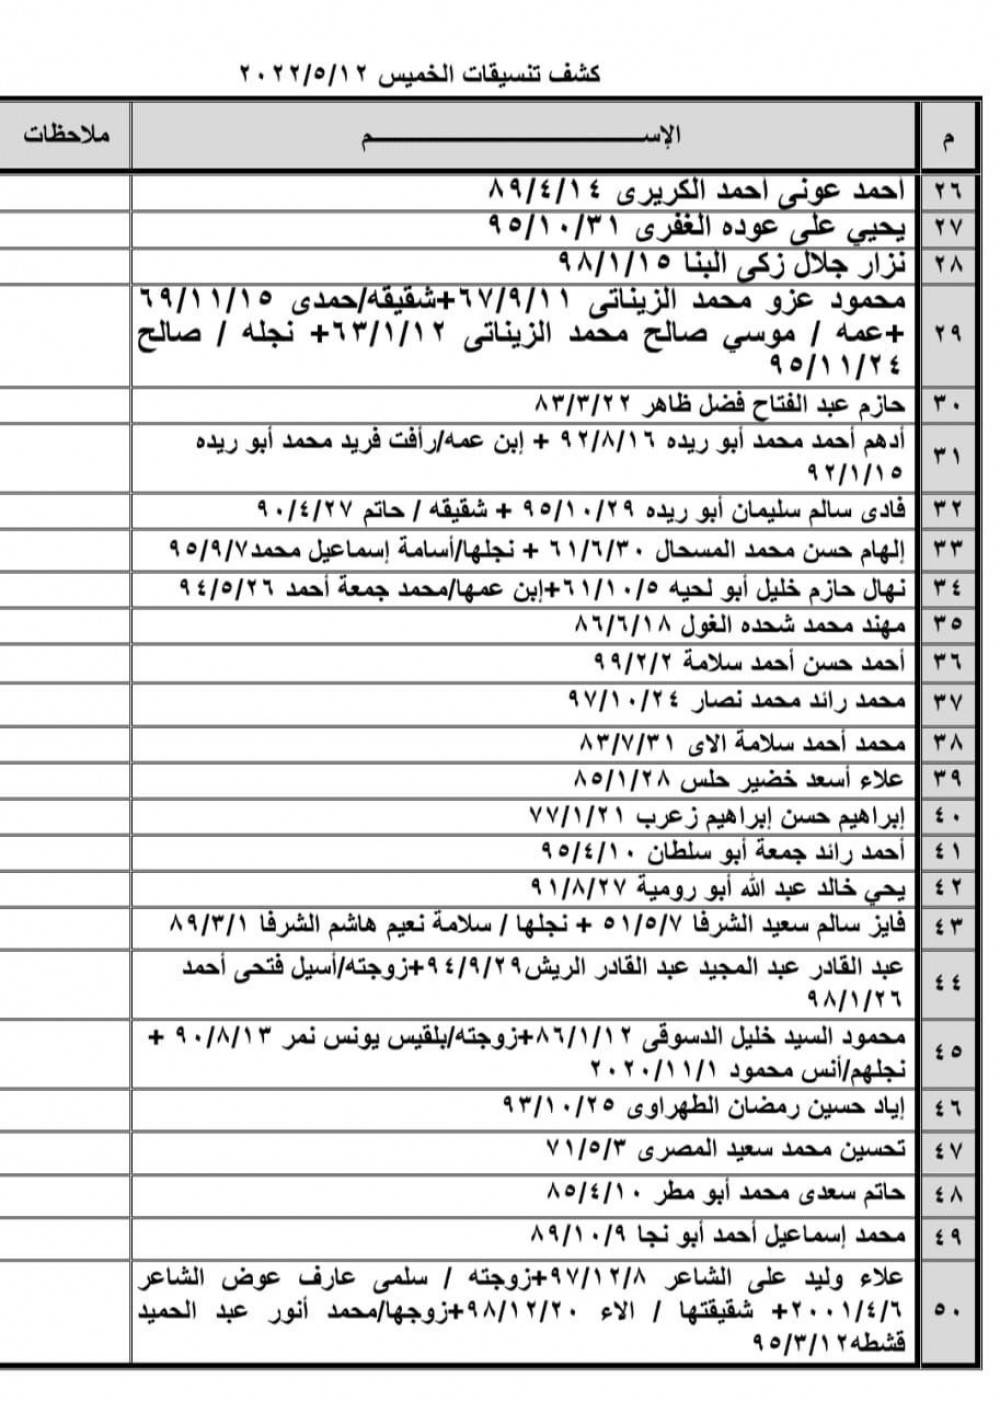 كشف تنسيقات الخميس ٢٠٢٢/٥/١٢
م الإســــــــم ملاحظات
٢٦ أحمد عونى أحمد الكريرى ٨٩/٤/١٤
٢٧ يحيي على عوده الغفرى ٩٥/١٠/٣١
٢٨ نزار جلال زكى البنا ٩٨/١/١٥
٢٩ محمود عزو محمد الزيناتى ٦٧/٩/١١+شقيقه/حمدى ٦٩/١١/١٥
+عمه / موسي صالح محمد الزيناتى ٦٣/١/١٢+ نجله / صالح
٩٥/١١/٢٤
٣٠ حازم عبد الفتاح فضل ظاهر ٨٣/٣/٢٢
٣١ أدهم أحمد محمد أبو ريده ٩٢/٨/١٦ + إبن عمه/رأفت فريد محمد أبو ريده
٩٢/١/١٥
٣٢ فادى سالم سليمان أبو ريده ٩٥/١٠/٢٩ + شقيقه / حاتم ٩٠/٤/٢٧
٣٣ إلهام حسن محمد المسحال ٦١/٦/٣٠ + نجلها/أسامة إسماعيل محمد٩٥/٩/٧
٣٤ نهال حازم خليل أبو لحيه ٦١/١٠/٥+إبن عمها/محمد جمعة أحمد ٩٤/٥/٢٦
٣٥ مهند محمد شحده الغول ٨٦/٦/١٨
٣٦ أحمد حسن أحمد سلامة ٩٩/٢/٢
٣٧ محمد رائد محمد نصار ٩٧/١٠/٢٤
٣٨ محمد أحمد سلامة الاى ٨٣/٧/٣١
٣٩ علاء أسعد خضير حلس ٨٥/١/٢٨
٤٠ إبراهيم حسن إبراهيم زعرب ٧٧/١/٢١
٤١ أحمد رائد جمعة أبو سلطان ٩٥/٤/١٠
٤٢ يحي خالد عبد الله أبو رومية ٩١/٨/٢٧
٤٣ فايز سالم سعيد الشرفا ٥١/٥/٧ + نجلها / سلامة نعيم هاشم الشرفا ٨٩/٣/١
٤٤ عبد القادر عبد المجيد عبد القادر الريش٩٤/٩/٢٩+زوجته/أسيل فتحى أحمد
٩٨/١/٢٦
٤٥ محمود السيد خليل الدسوقى ٨٦/١/١٢+زوجته/بلقيس يونس نمر ٩٠/٨/١٣ +
نجلهم/أنس محمود ٢٠٢٠/١١/١
٤٦ إياد حسين رمضان الطهراوى ٩٣/١٠/٢٥
٤٧ تحسين محمد سعيد المصرى ٧١/٥/٣
٤٨ حاتم سعدى محمد أبو مطر ٨٥/٤/١٠
٤٩ محمد إسماعيل أحمد أبو نجا ٨٩/١٠/٩
٥٠ علاء وليد على الشاعر ٩٧/١٢/٨+زوجته / سلمى عارف عوض الشاعر
٢٠٠١/٤/٦+ شقيقتها / الاء ٩٨/١٢/٢٠+زوجها/محمد أنور عبد الحميد
قشطه٩٥/٣/١٢